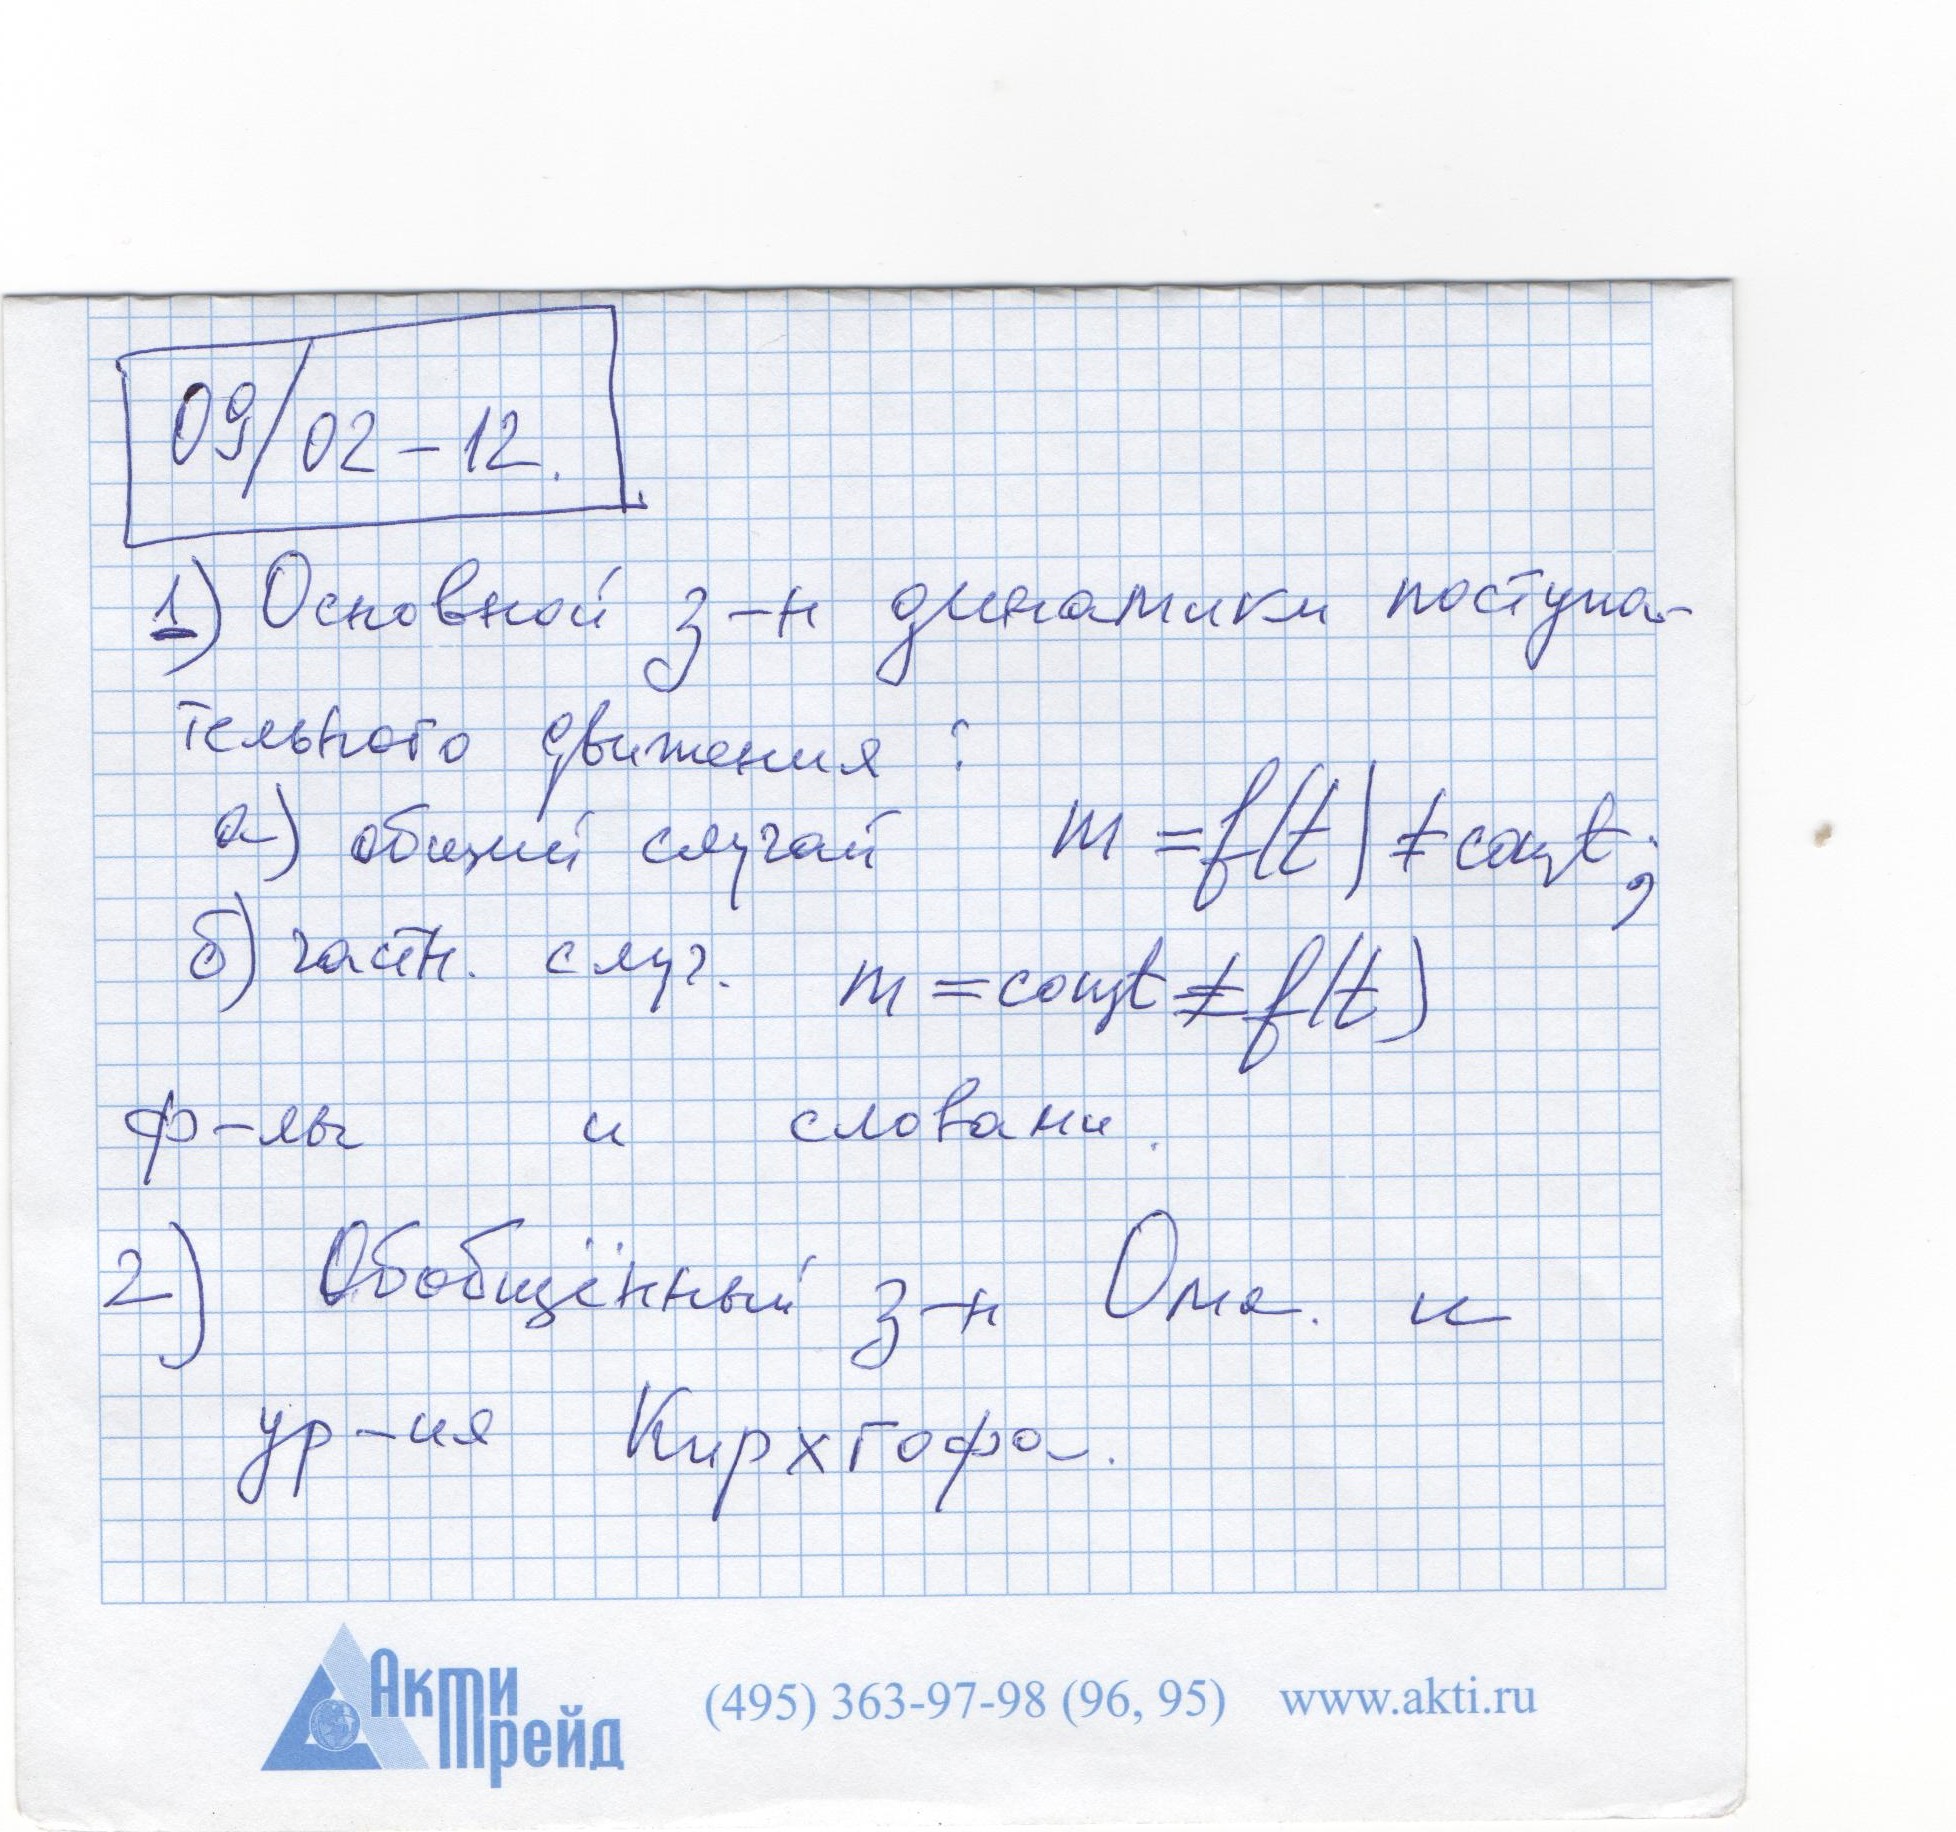 09/02-12.
1) Основной з-н динамики поступа-
тельного движения:
а) общий случай m = f(t) ≠ const;
б) частн. случ. m = const ≠ f(t)
ф-лы и словами.
2) Обобщённый з-н Ома. и
ур-ия Кирхгофа.
Акти
Трейд
(495) 363-97-98 (96, 95) www.akti.ru